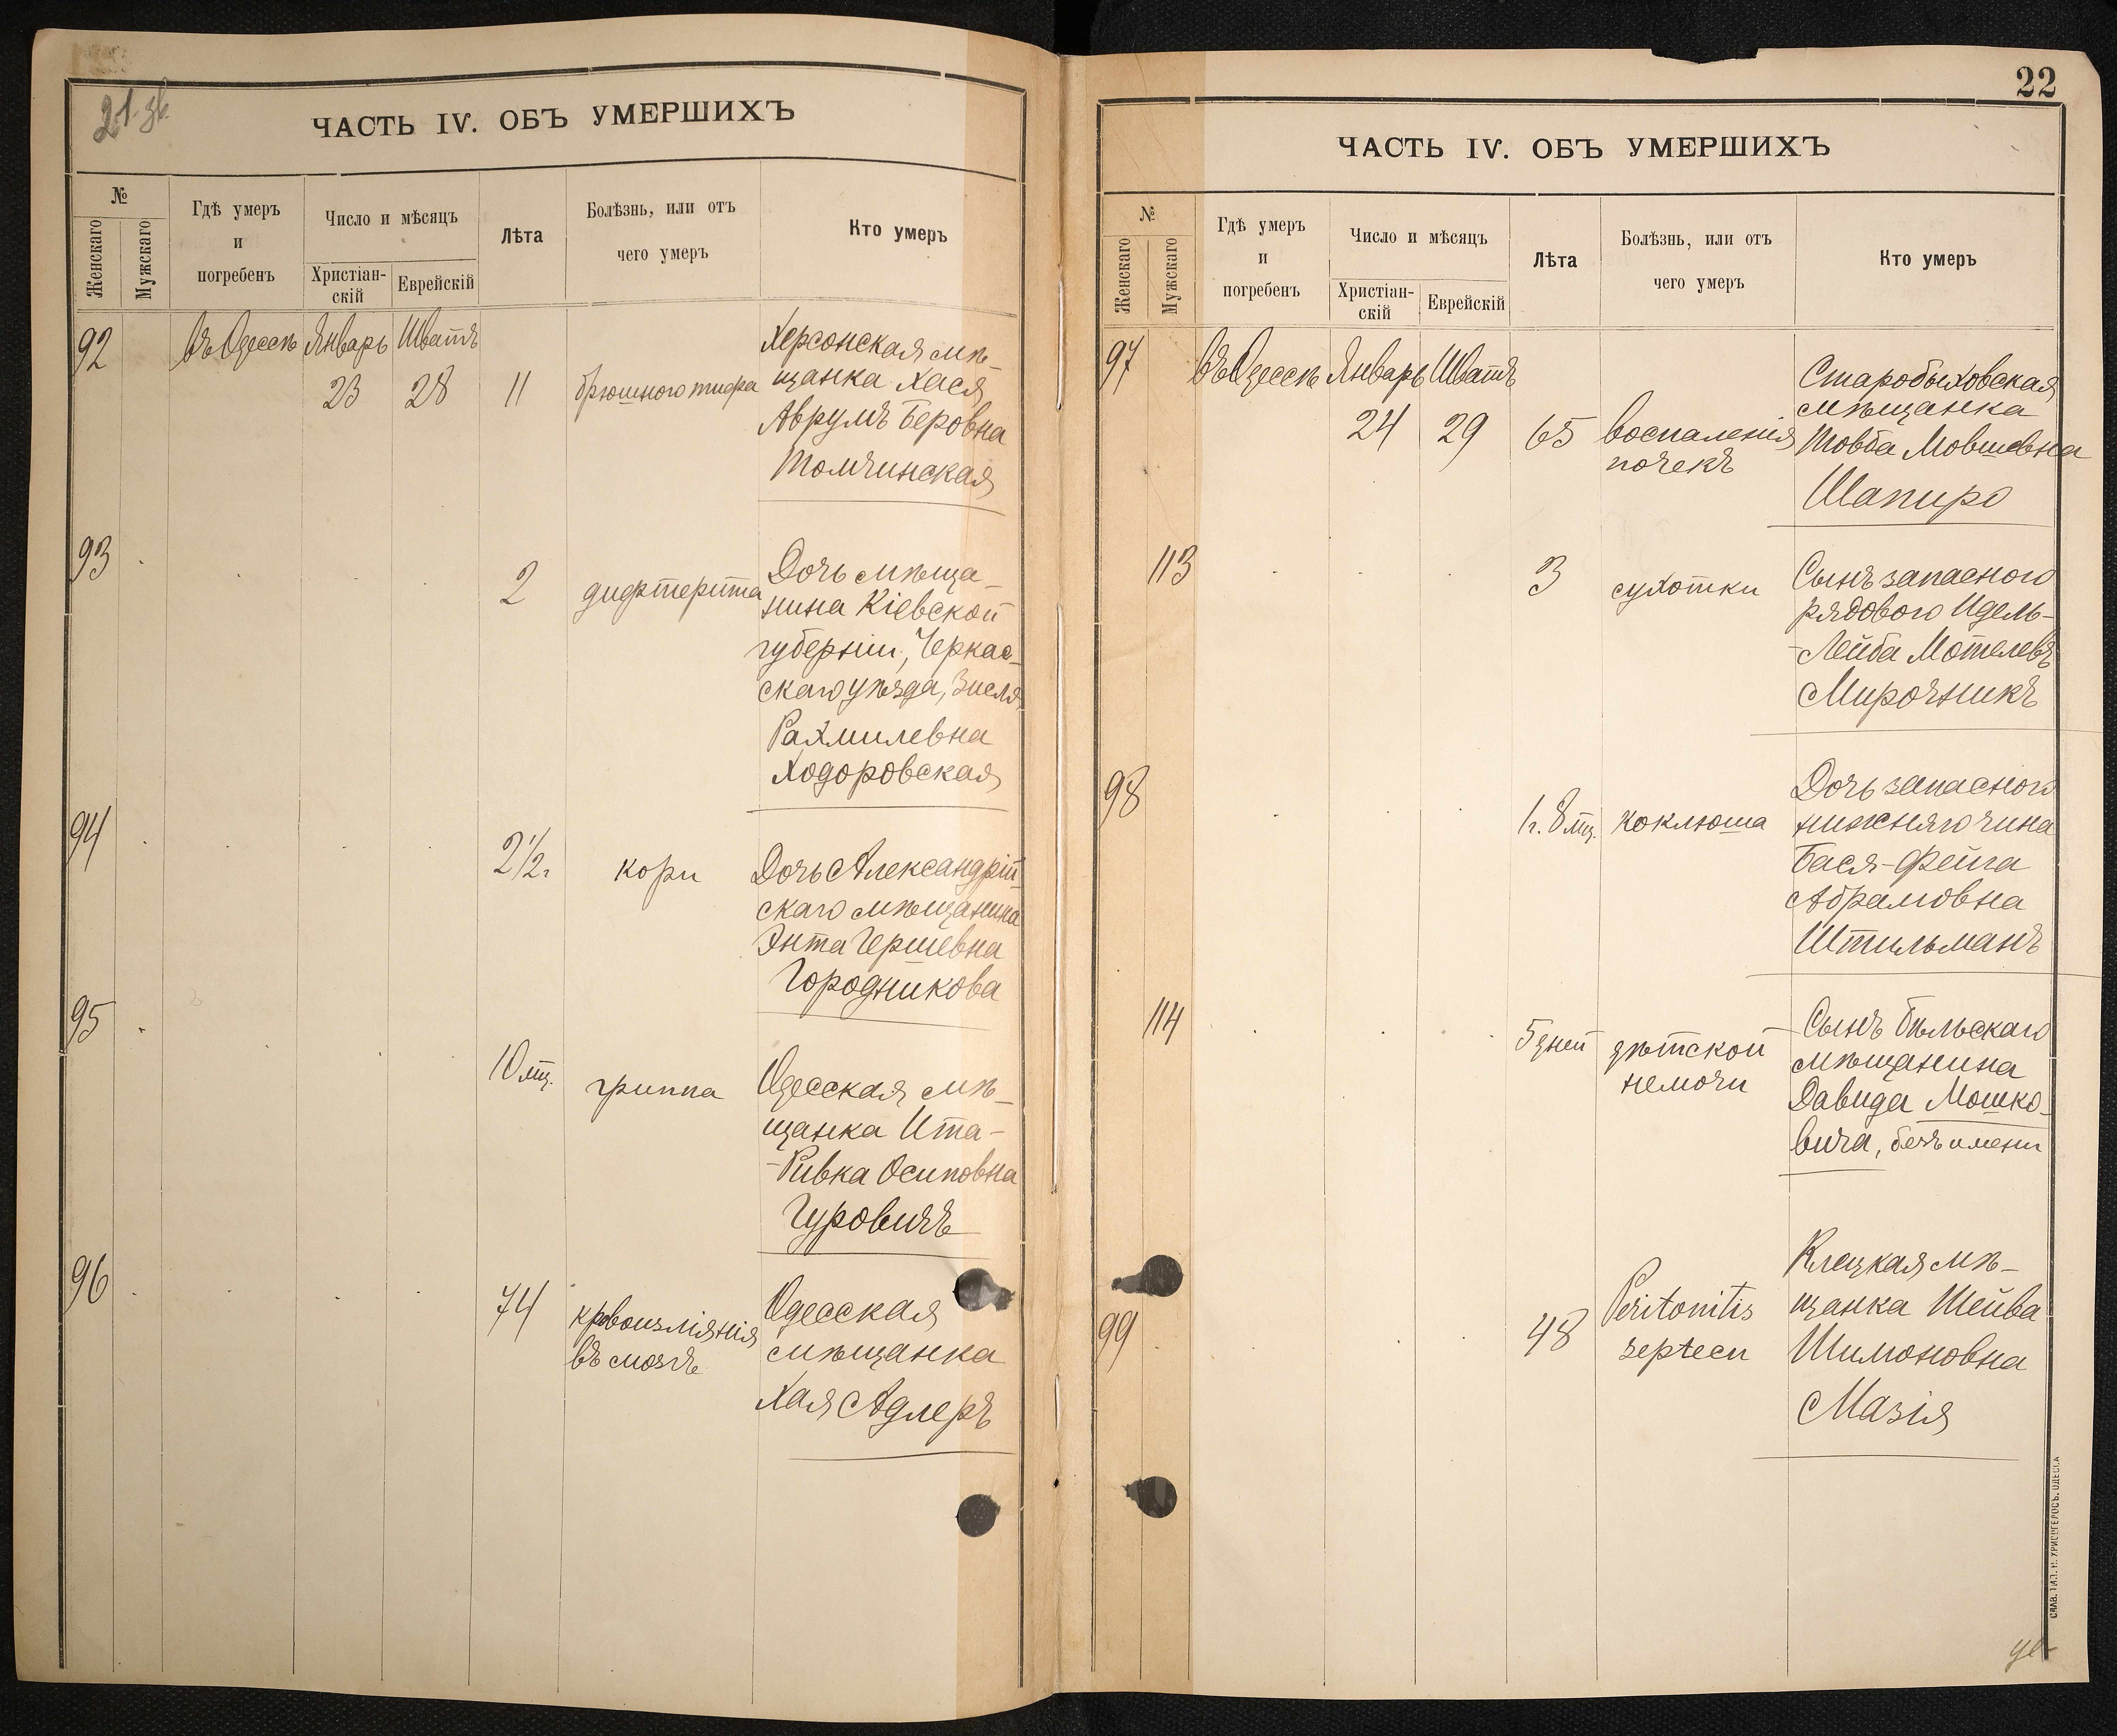 21 зв.
ЧАСТЬ IV. ОБЪ УМЕРШИХЪ
№
Женскаго
Мужскаго
Гдѣ умеръ
и
погребенъ
Число и мѣсяцъ
Христіан-
скій
Еврейскій
Лѣта
Болѣзнь, или отъ
чего умеръ
Кто умеръ
92
въ Одессѣ Январь Шватъ
23 28 11 брюшного тифа
Херсонская мѣ-
щанка Хася
Аврумъ Беровна
Томчинская
93
2 дифтерита
Дочь мѣща-
нина Кіевской
губерніи, Черкас-
скаго уѣзда, Зисля
Рахмилевна
Ходоровская
94
2 1/2 г. кори
Дочь Александрій-
скаго мѣщанина
Энта Гершевна
Городникова
95
10 мц. гриппа
Одесская мѣ-
щанка Ита-
-Ривка Осиповна
Гуровичъ
96
74 кровоизліянія
въ мозгъ
Одесская
мѣщанка
Хая Адлеръ
22
ЧАСТЬ IV. ОБЪ УМЕРШИХЪ
№
Женскаго
Мужскаго
Гдѣ умеръ
и
погребенъ
Число и мѣсяцъ
Христіан-
скій
Еврейскій
Лѣта
Болѣзнь, или отъ
чего умеръ
Кто умеръ
97
въ Одессѣ Январь Шватъ
24 29 65 воспаленія
почекъ
Старобыховская
мѣщанка
Товба Мовшевна
Шапиро
113
3 сухотки
Сынъ запасного
рядового Идель-
-Лейба Мотелевъ
Мирочникъ
98
1 г. 8 мц. коклюша
Дочь запасного
нижняго чина
Бася-Фейга
Абрамовна
Штильманъ
114
5 дней дѣтской
немочи
Сынъ Бѣльскаго
мѣщанина
Давида Мошко-
вича, безъ имени
99
48 Peritonitis
septecи
Клецкая мѣ-
щанка Шейва
Шимоновна
Мазія